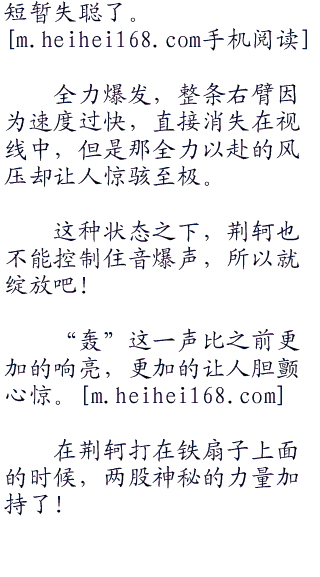 短暂失聪了。
[m.heihei168.com手机阅读]
全力爆发，整条右臂因
为速度过快，直接消失在视
线中，但是那全力以赴的风
压却让人惊骇至极。
这种状态之下，荆轲也
不能控制住音爆声，所以就
绽放吧！
“轰”这一声比之前更
加的响亮，更加的让人胆颤
心惊。[m.heihei168.com]
在荆轲打在铁扇子上面
的时候，两股神秘的力量加
持了！